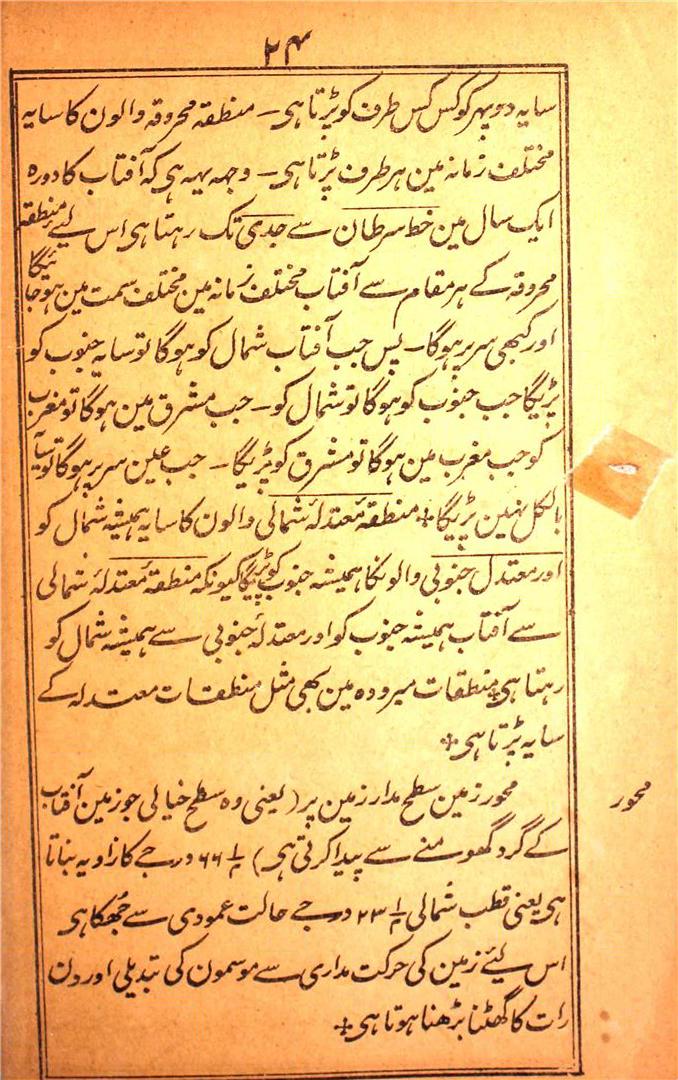 ۲۴
سایہ دوپہر کو کس کس طرف کو پڑتا ہی ۔ منطقہ محروقہ والون کا سایہ
مختلف زمانہ مین ہر طرف پڑتا ہی ۔ وجہ یہہ ہی کہ آفتاب کا دورہ
ایک سال مین خط سرطان سے جدی تک رہتا ہی اس لیے منطقہ
محروقہ کے ہر مقام سے آفتاب مختلف زمانہ مین مختلف سمت مین ہو جائیگا
اور کبھی سر پر ہوگا ۔ پس جب آفتاب شمال کو ہوگا تو سایہ جنوب کو
پڑیگا جب جنوب کو ہوگا تو شمال کو ۔ جب مشرق مین ہوگا تو مغرب
کو جب مغرب مین ہوگا تو مشرق کو پڑیگا ۔ جب عین سر پر ہوگا تو سایہ
بالکل نہین پڑیگا ÷ منطقہٴ معتدلہٴ شمالی والون کا سایہ ہمیشہ شمال کو
اور معتدل جنوبی والونکا ہمیشہ جنوب کو پڑیگا کیونکہ منطقہٴ معتدلہٴ شمالی
سے آفتاب ہمیشہ جنوب کو اور معتدلہٴ جنوبی سے ہمیشہ شمال کو
رہتا ہی ÷ منطقات مبرودہ مین بھی مثل منطقات معتدلہ کے
سایہ پڑتا ہی ÷
محور
محور زمین سطح مدار زمین پر (یعنی وہ سطح خیالی جو زمین آفتاب
کے گرد گھومنے سے پیدا کرتی ہی) ۶۶ ۱/۲ درجے کا زاویہ بناتا
ہی یعنی قطب شمالی ۲۳ ۱/۲ درجے حالت عمودی سے جُھکا ہی
اس لیئے زمین کی حرکت مداری سے موسمون کی تبدیلی اور دن
رات کا گھٹنا بڑھنا ہوتا ہی ÷